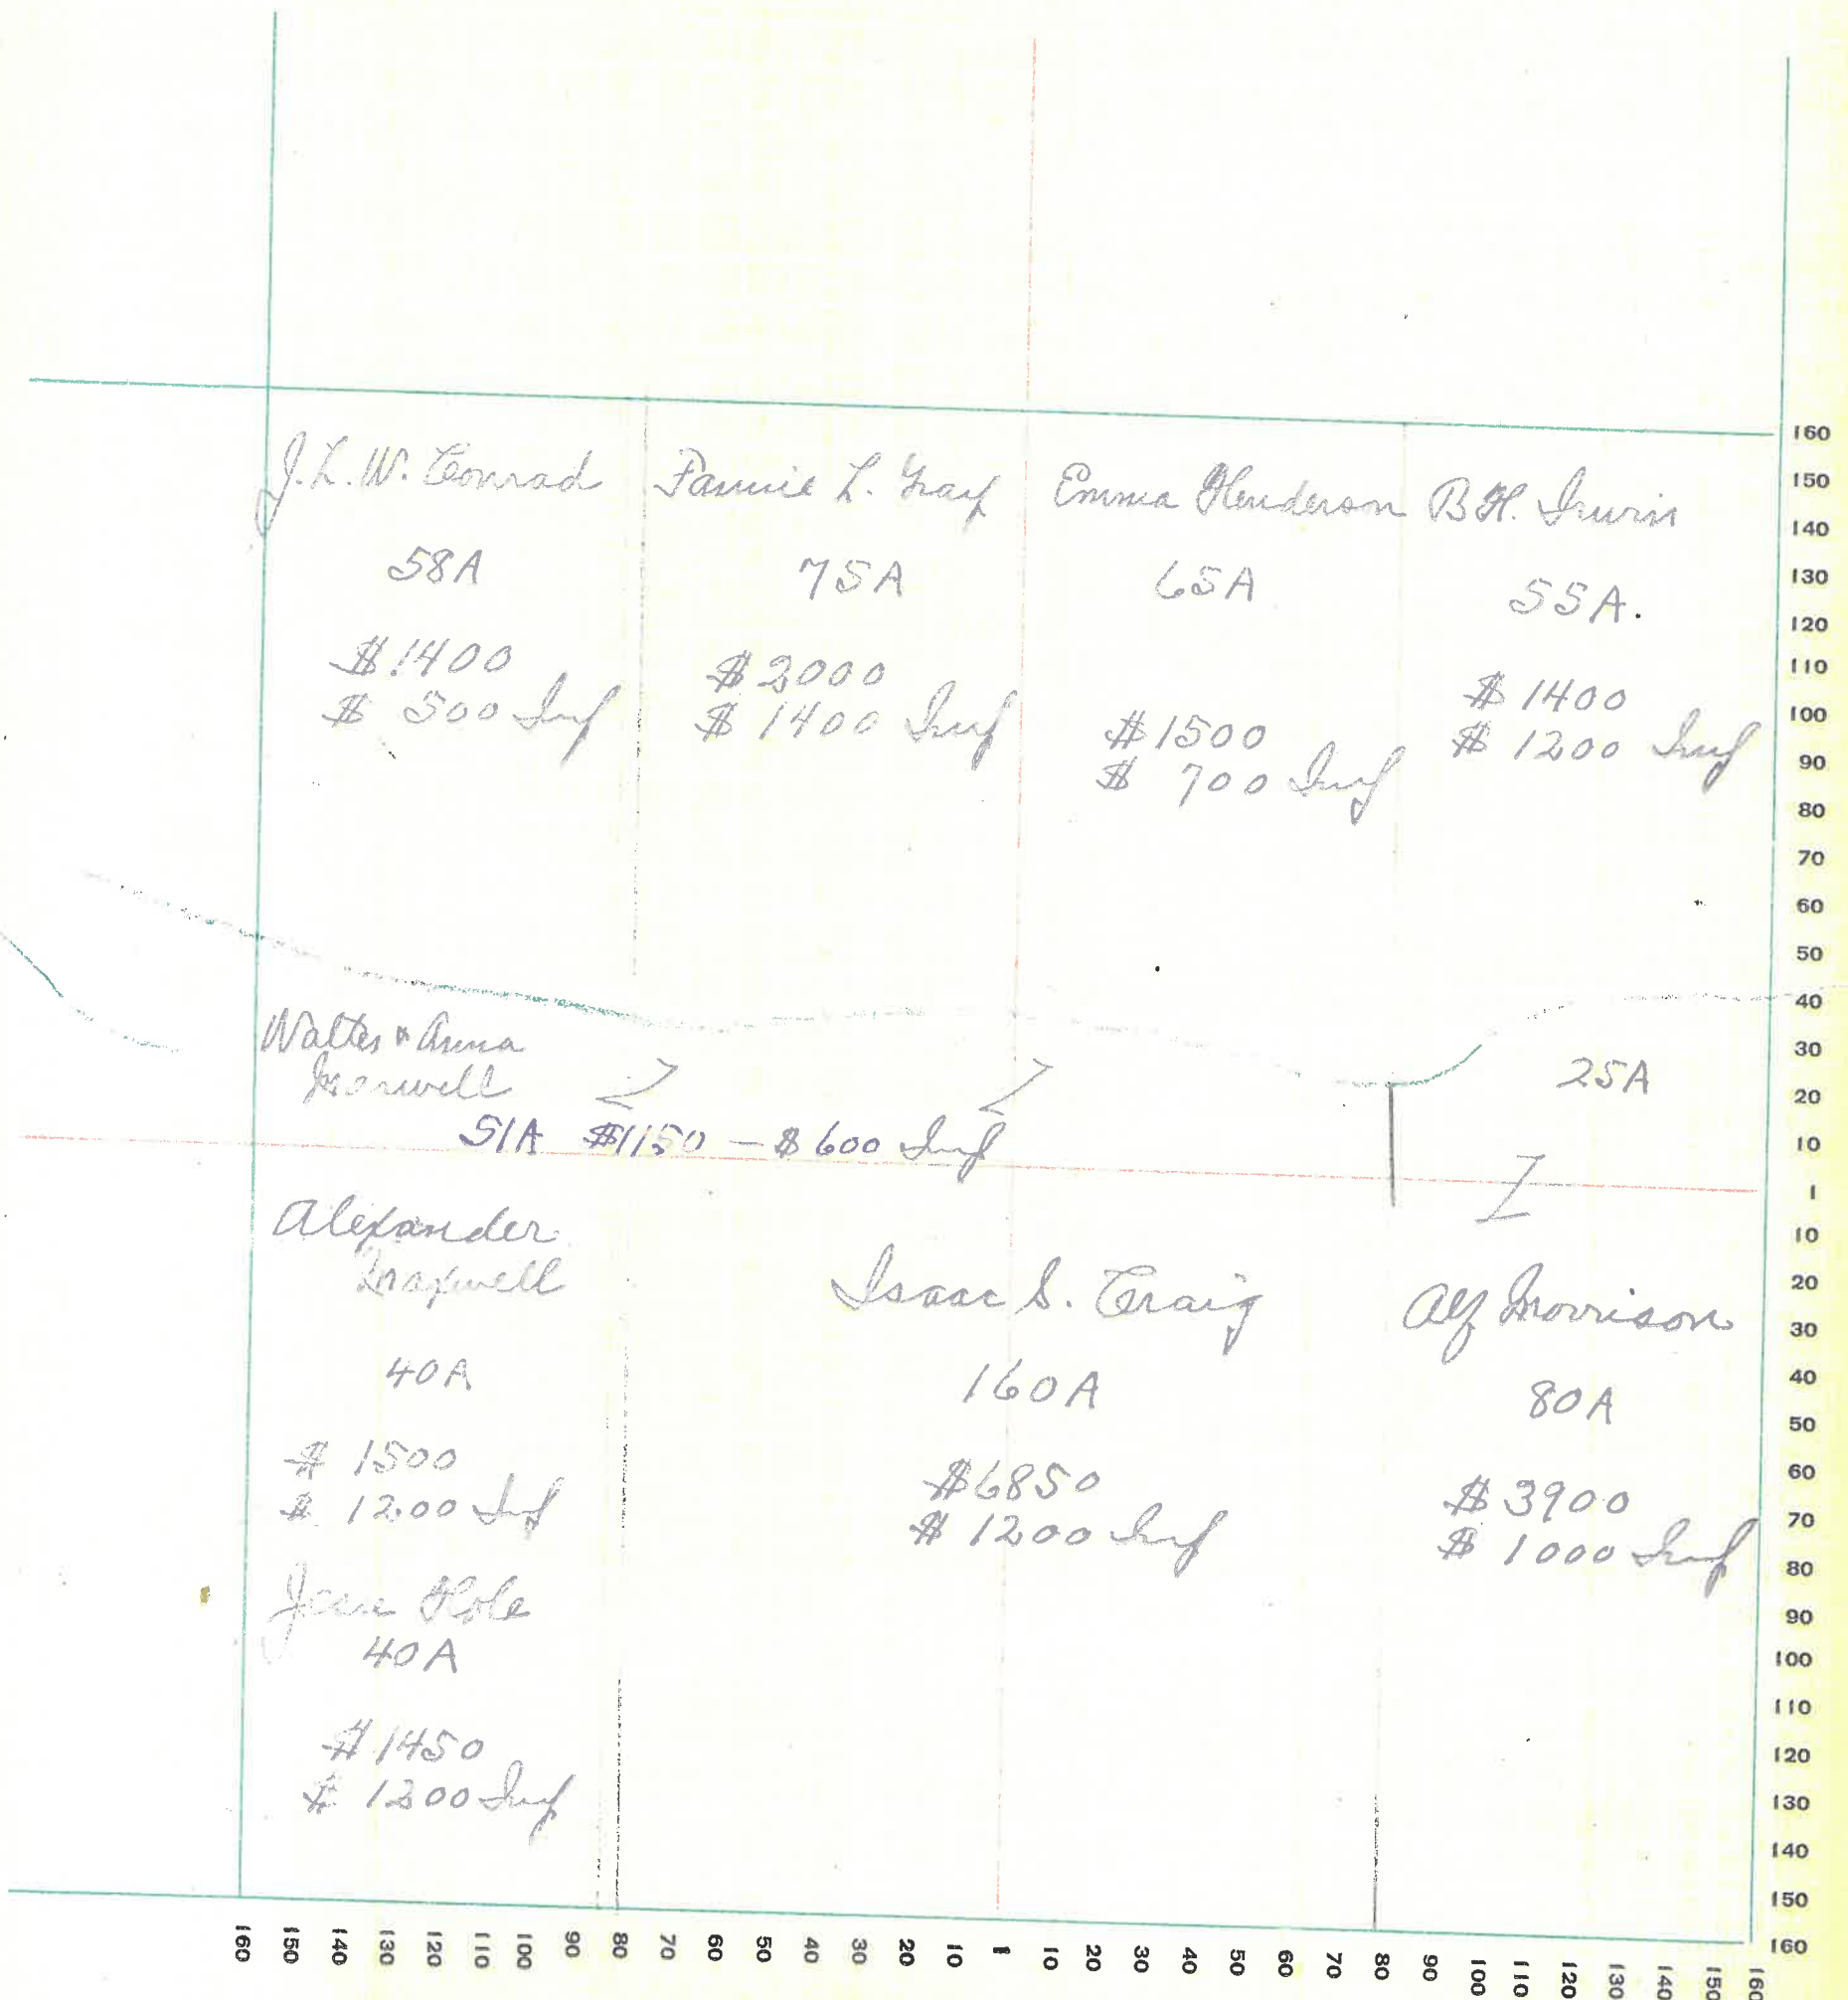 J. L. W. Conrad
58A
$1400
$ 500 Imp
Fannie L. Gray
75A
$2000
$ 1400 Imp
Emma Henderson
65A
$1500
$ 700 Imp
B H. Irwin
55A.
$ 1400
$ 1200 Imp
Walter & Anna
Maxwell
51A $1150 – $600 Imp
25A
Alexander
Maxwell
40A
$ 1500
$ 1200 Imp
Isaac S. Craig
160A
$6850
$ 1200 Imp
Alf Morrison
80A
$3900
$ 1000 Imp
Hole
40A
$1450
$ 1200 Imp
160
150
140
130
120
110
100
90
80
70
60
50
40
30
20
10
1
10
20
30
40
50
60
70
80
90
100
110
120
130
140
150
160
160 150 140 130 120 110 100 90 80 70 60 50 40 30 20 10 1 10 20 30 40 50 60 70 80 90 100 110 120 130 140 150 160